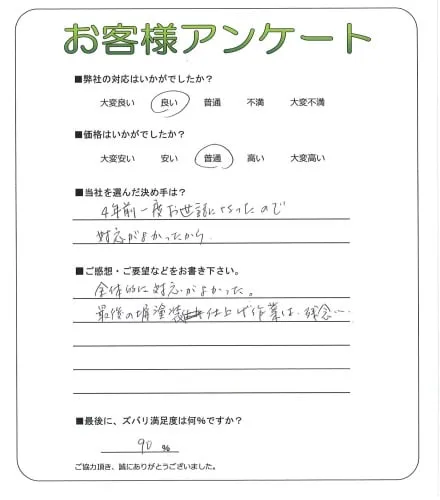 お客様アンケート
■弊社の対応はいかがでしたか？
大変良い 良い 普通 不満 大変不満
■価格はいかがでしたか？
大変安い 安い 普通 高い 大変高い
■当社を選んだ決め手は？
4年前一度お世話になったので
対応がよかったから
■ご感想・ご要望などをお書き下さい。
全体的に対応がよかった。
最後の塀塗装仕上げ作業は、残念…
■最後に、ズバリ満足度は何%ですか？
90 %
ご協力頂き、誠にありがとうございました。